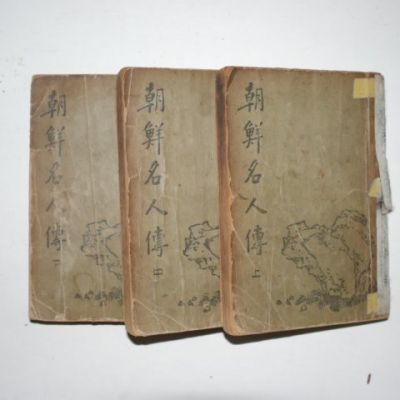 朝鮮名人傳
朝鮮名人傳 中
朝鮮名人傳 上